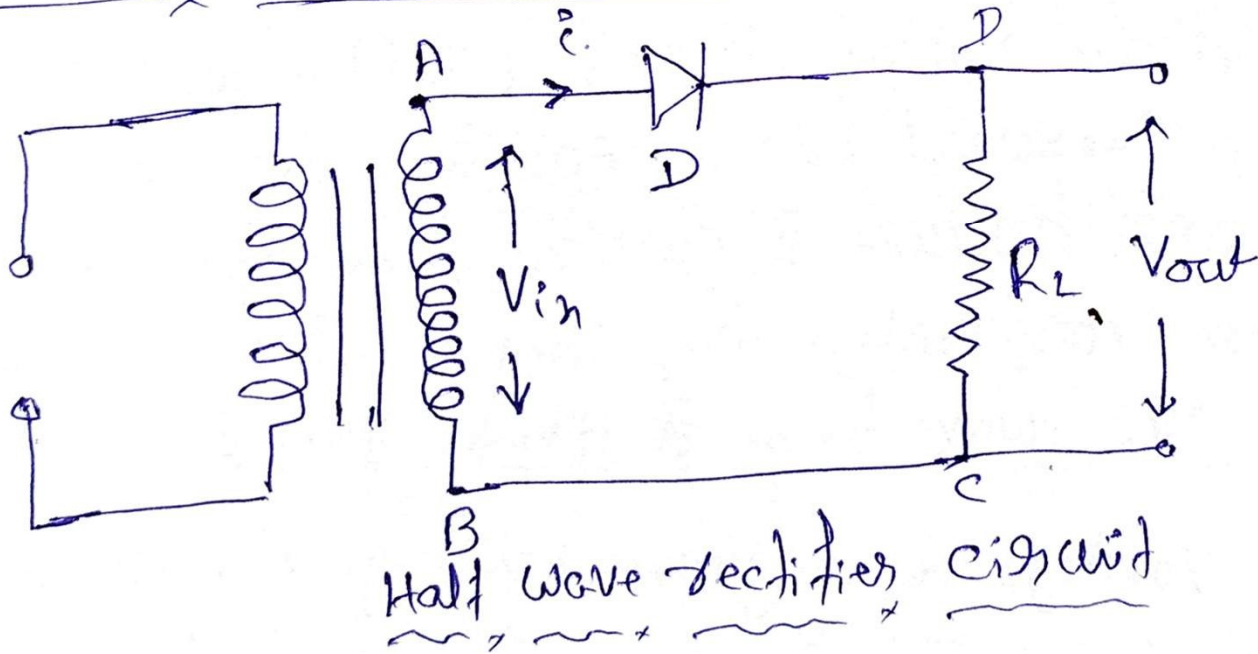 i.
A
D
D
Vin
RL
Vout
B
C
Half wave rectifier circuit